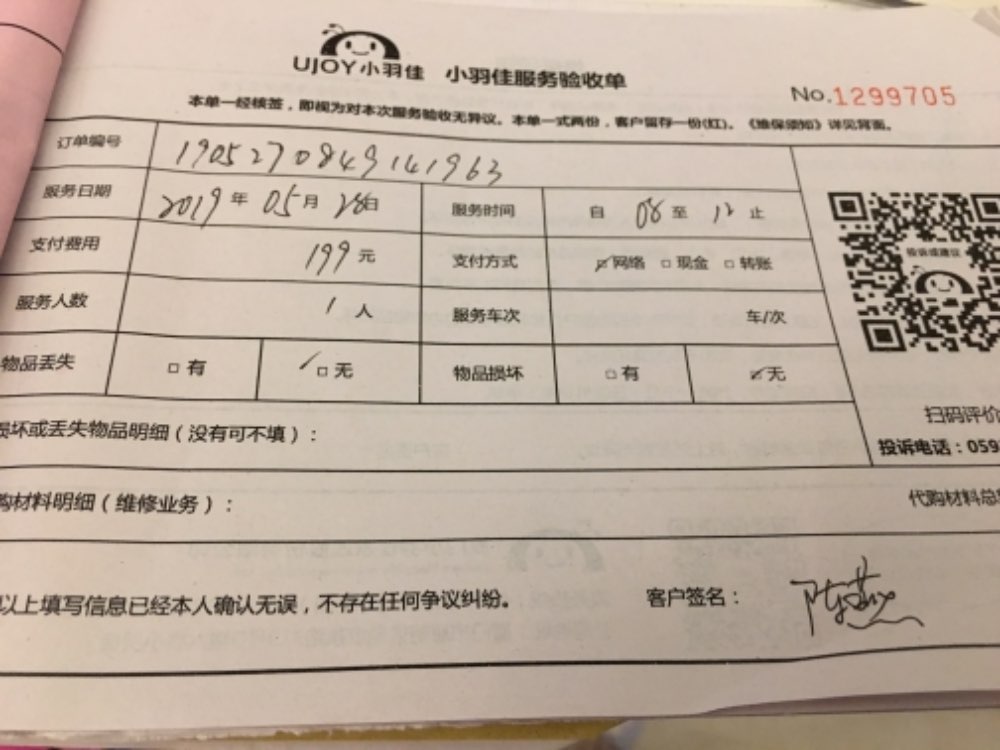 UJOY小羽佳 小羽佳服务验收单
No.1299705
本单一经核签，即视为对本次服务验收无异议。本单一式两份，客户留存一份(红)。《维保须知》详见背面。
订单编号 1905270849141963
服务日期 2019年05月28日 服务时间 自08至12止
支付费用 199元 支付方式 网络 现金 转账
投诉或建议
服务人数 1人 服务车次 车/次
物品丢失 有 无 物品损坏 有 无
扫码评价
损坏或丢失物品明细（没有可不填）：
投诉电话：059
购材料明细（维修业务）： 代购材料总
以上填写信息已经本人确认无误，不存在任何争议纠纷。 客户签名：